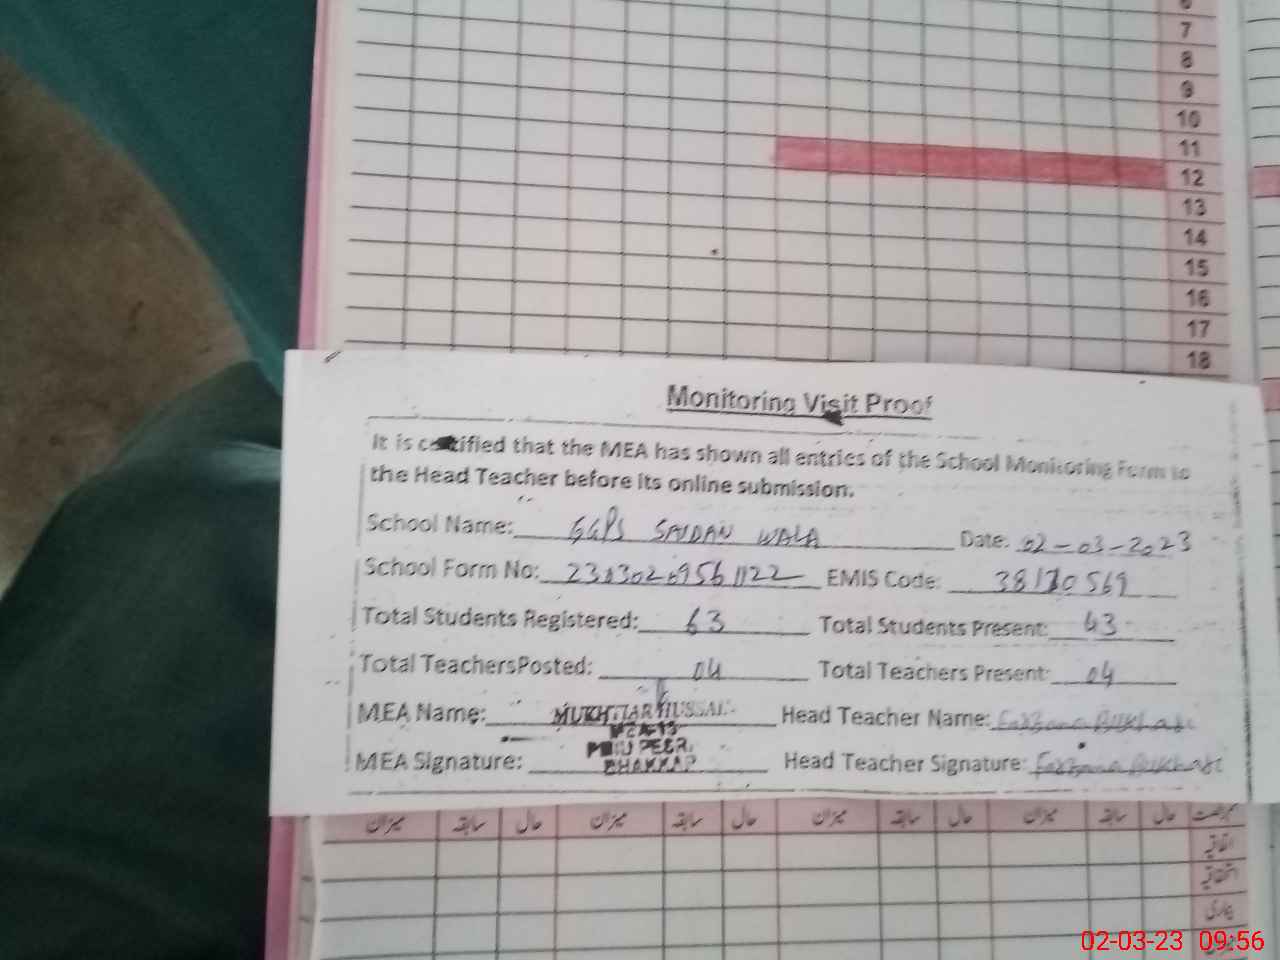 7
8
9
10
11
12
13
14
15
16
17
18
Monitoring Visit Proof
It is certified that the MEA has shown all entries of the School Monitoring Form to
the Head Teacher before its online submission.
School Name: GGPS SAIDAN WALA Date: 02-03-2023
School Form No: EMIS Code: 38170569
Total Students Registered: 63 Total Students Present: 43
Total TeachersPosted: 04 Total Teachers Present: 04
MEA Name: MUKHTIAR HUSSAIN Head Teacher Name: Farzana Bukhari
MEA Signature: BHAKKAR Head Teacher Signature: Farzana Bukhari
حال سابقہ میزان حال سابقہ میزان حال سابقہ میزان حال سابقہ میزان
02-03-23 09:56